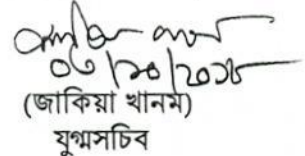 ০৬/১০/২০১৮
(জাকিয়া খানম)
যুগ্মসচিব